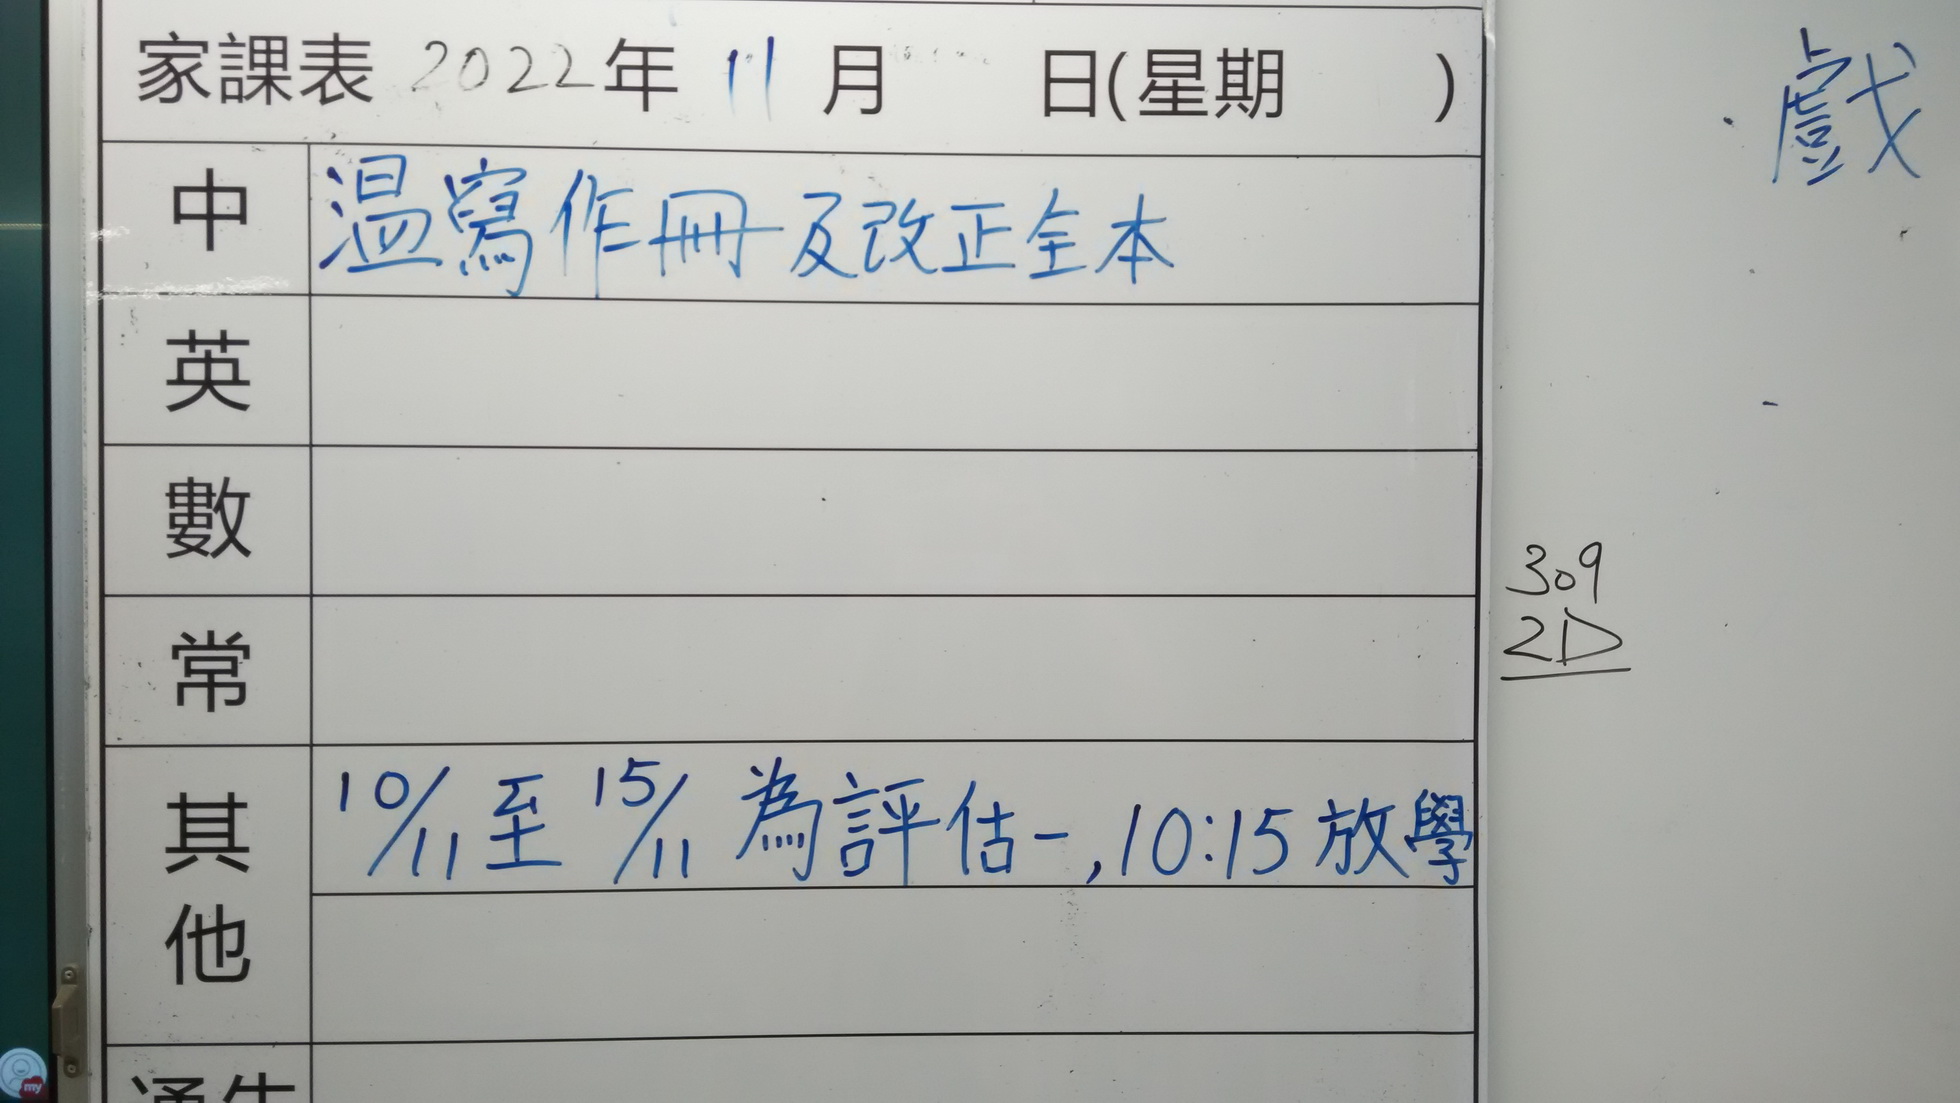 家課表 2022年 11 月 日(星期 )
中 温寫作冊及改正全本
英
數
常
其他 10/11 至 15/11 為評估一, 10:15 放學
通告
戲
309
2D
my